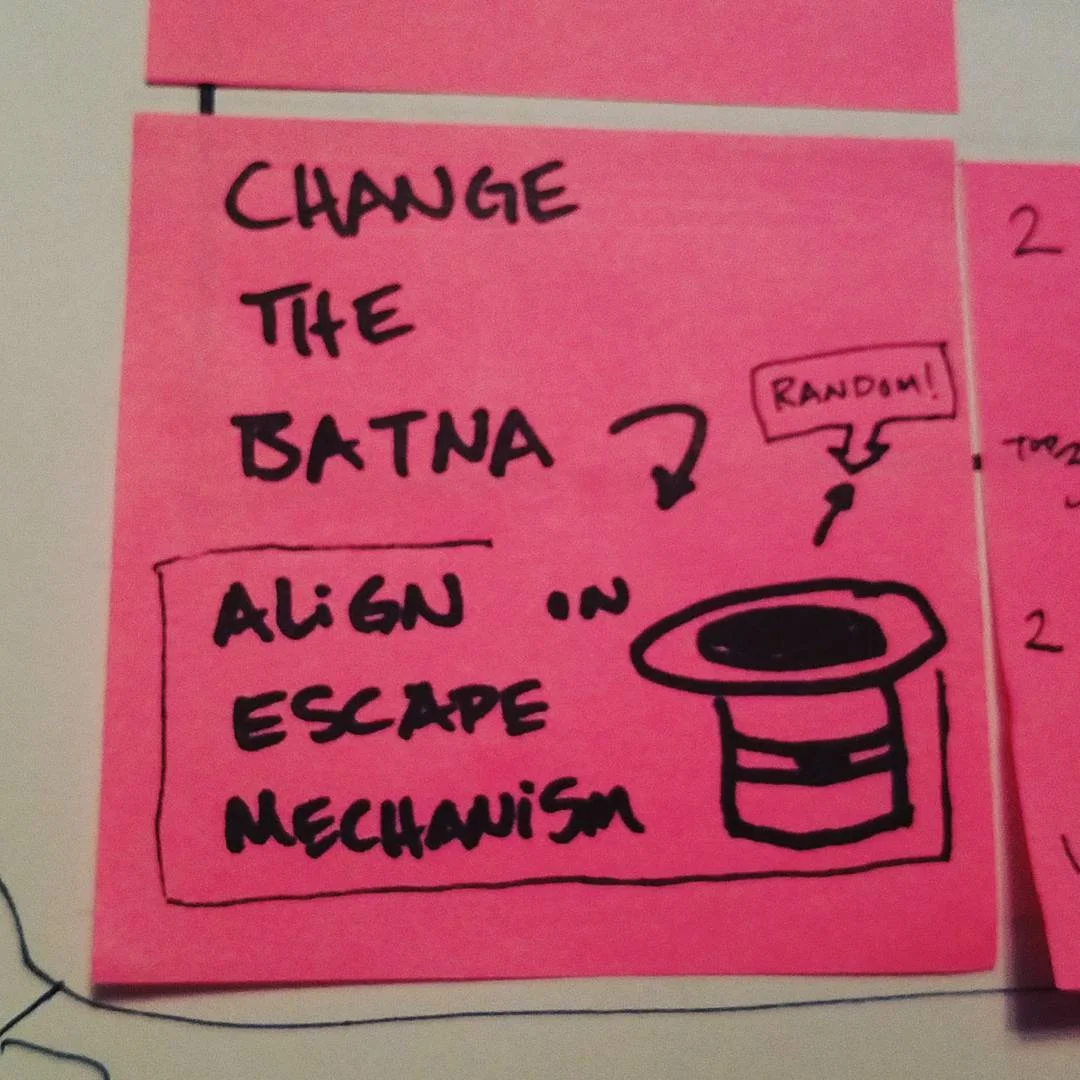 CHANGE
THE
BATNA
RANDOM!
ALiGN ON
ESCAPE
MECHANiSM
2
2